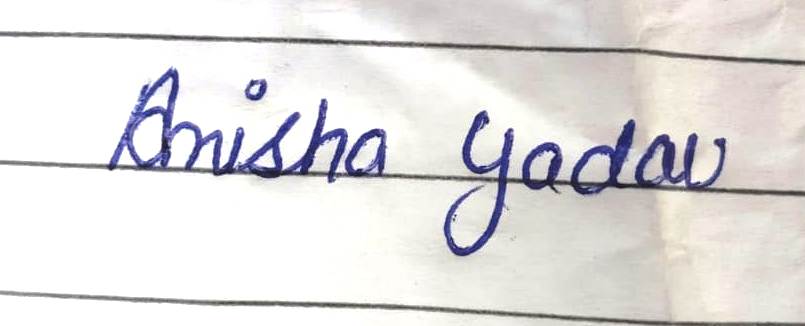 Anisha Yadav